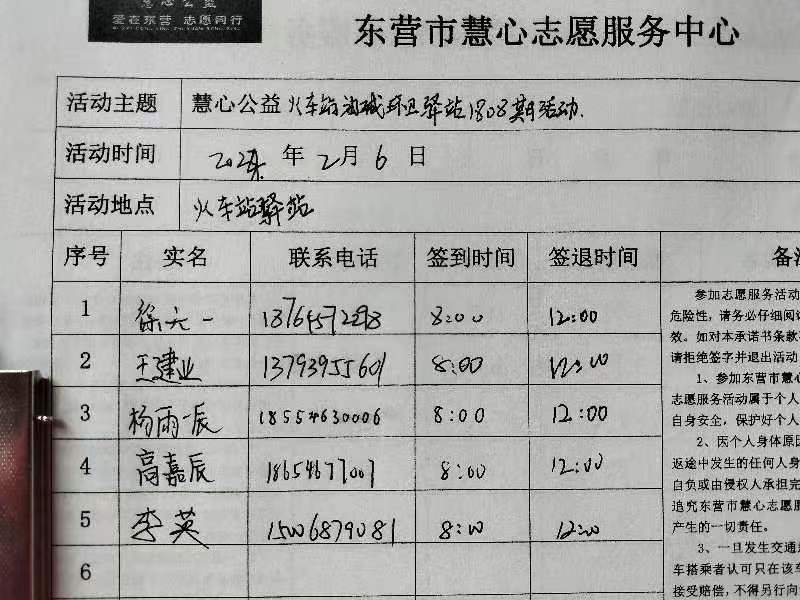 慧心公益
爱在东营 志愿同行
东营市慧心志愿服务中心
活动主题 慧心公益火车站沿城环卫驿站1808期活动.
活动时间 年 2月6日
活动地点 火车站驿站
序号 实名 联系电话 签到时间 签退时间 备
1 徐天一 8:00 12:00
2 王建业 13793955601 8:00 12:00
3 杨雨辰 18554630006 8:00 12:00
4 高嘉辰 18654677007 8:00 12:00
5 李英 15006879081 8:00 12:00
6
参加志愿服务活动
危险性，请务必仔细阅读
效。如对本承诺书条款
请拒绝签字并退出活动
1、参加东营市慧心
志愿服务活动属于个人
自身安全，保护好个人
2、因个人身体原因
返途中发生的任何人身
自负或由侵权人承担完
追究东营市慧心志愿服
产生的一切责任。
3、一旦发生交通
车搭乘者认可只在该车
接受赔偿，不得另行向